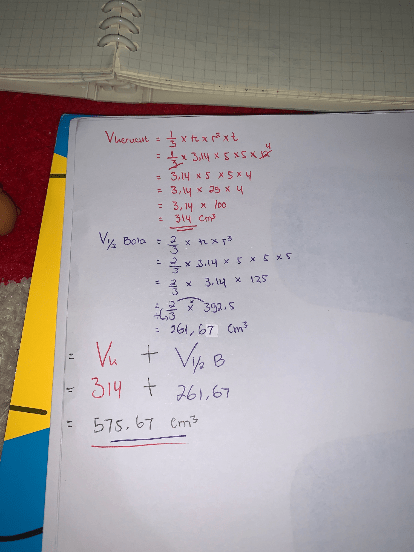 Vkerucut = 1/3 x π x r² x t
= 1/3 x 3,14 x 5 x 5 x 12 4
= 3,14 x 5 x 5 x 4
= 3,14 x 25 x 4
= 3,14 x 100
= 314 cm³
V½ Bola = 2/3 x π x r³
= 2/3 x 3,14 x 5 x 5 x 5
= 2/3 x 3,14 x 125
= 2/3 x 392,5
= 261,67 cm³
= Vk + V½ B
= 314 + 261,67
= 575,67 cm³